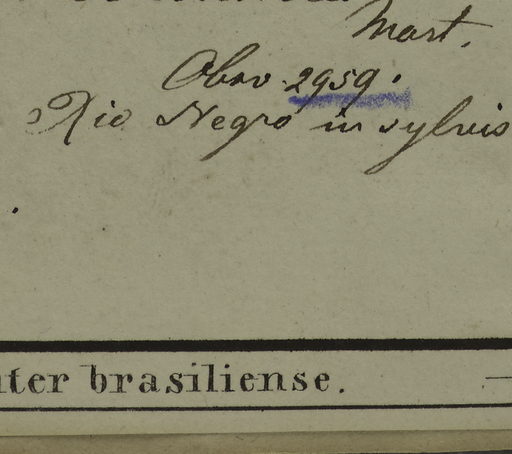 Mart.
Obsv 2959.
Rio Negro in sylvis
iter brasiliense.